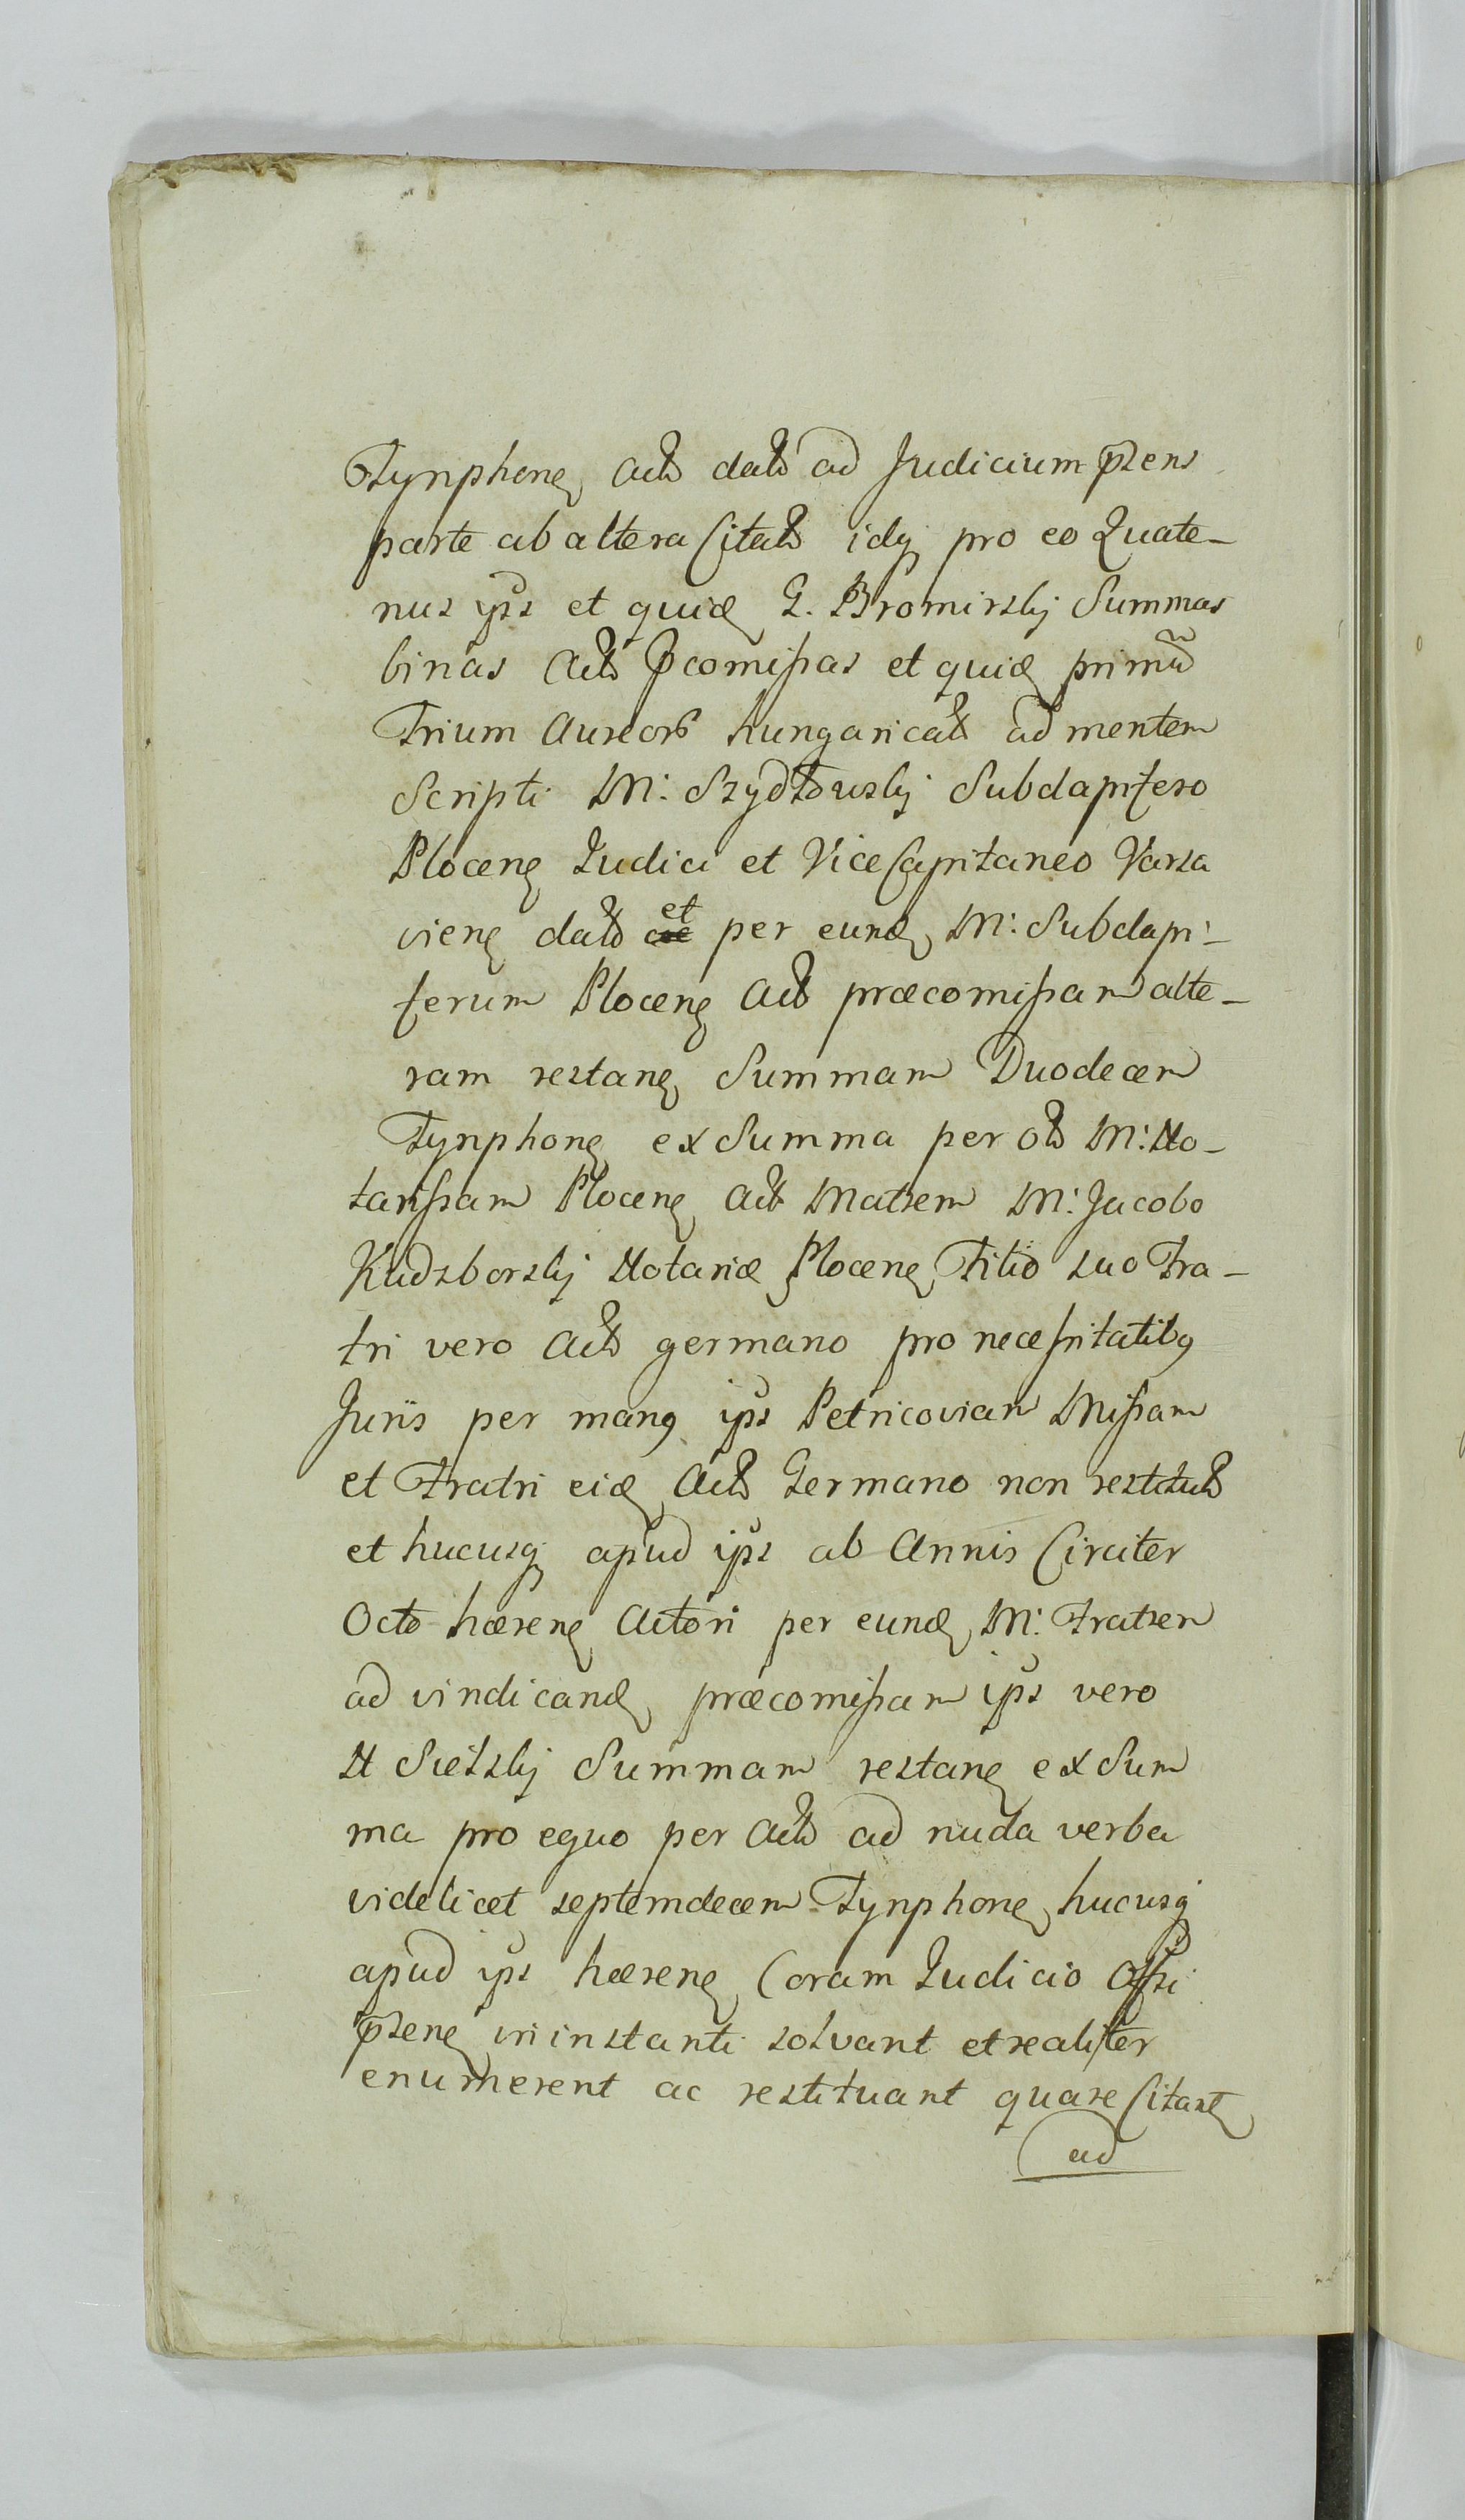 Tynphonẽ Actõ datõ ad Judicium p̃sens
parte ab altera Citatõ idq̨ pro eo Quate-
nus ip̃s et quid̃ G. Bromirskij Summas
binas Actõ P̃comissas et quid̃ primũ
Trium Aureorõ hungaricalõ ad mentem
Scripti M: Szydłowskij Subdapifero
Ploceñ Judici et ViceCapitaneo Varsa
vieñ datõ et per eund̃ M: Subdapi-
ferum Ploceñ Actõ præcomissam alte-
ram restañ Summam Duodecem
Tynphoñ ex Summa per olõ M: No-
tarissam Ploceñ Actõ Matrem M: Jacobo
Kudzborskij Notario Ploceñ Filio suo Fra-
tri vero Actõ germano pro necessitatibq
Juris per manq ip̃s Petricoviam Missam
et Fratri eid̃ Actõ Germano non restitutõ
et hucusq̨ apud ip̃s ab Annis Circiter
Octo hæreñ Actori per eund̃ M: Fratrem
ad vindicand̃ præcomissam ip̃s vero
N Sietskij Summam restañ ex Sum
ma pro equo per Actõ ad nuda verba
videlicet septemdecem Tynphoñ hucusq̨
apud ip̃s hæreñ Coram Judicio Offi
p̃señ in instanti solvant et realiter
enumerent ac restituant quare Citatõ
ad